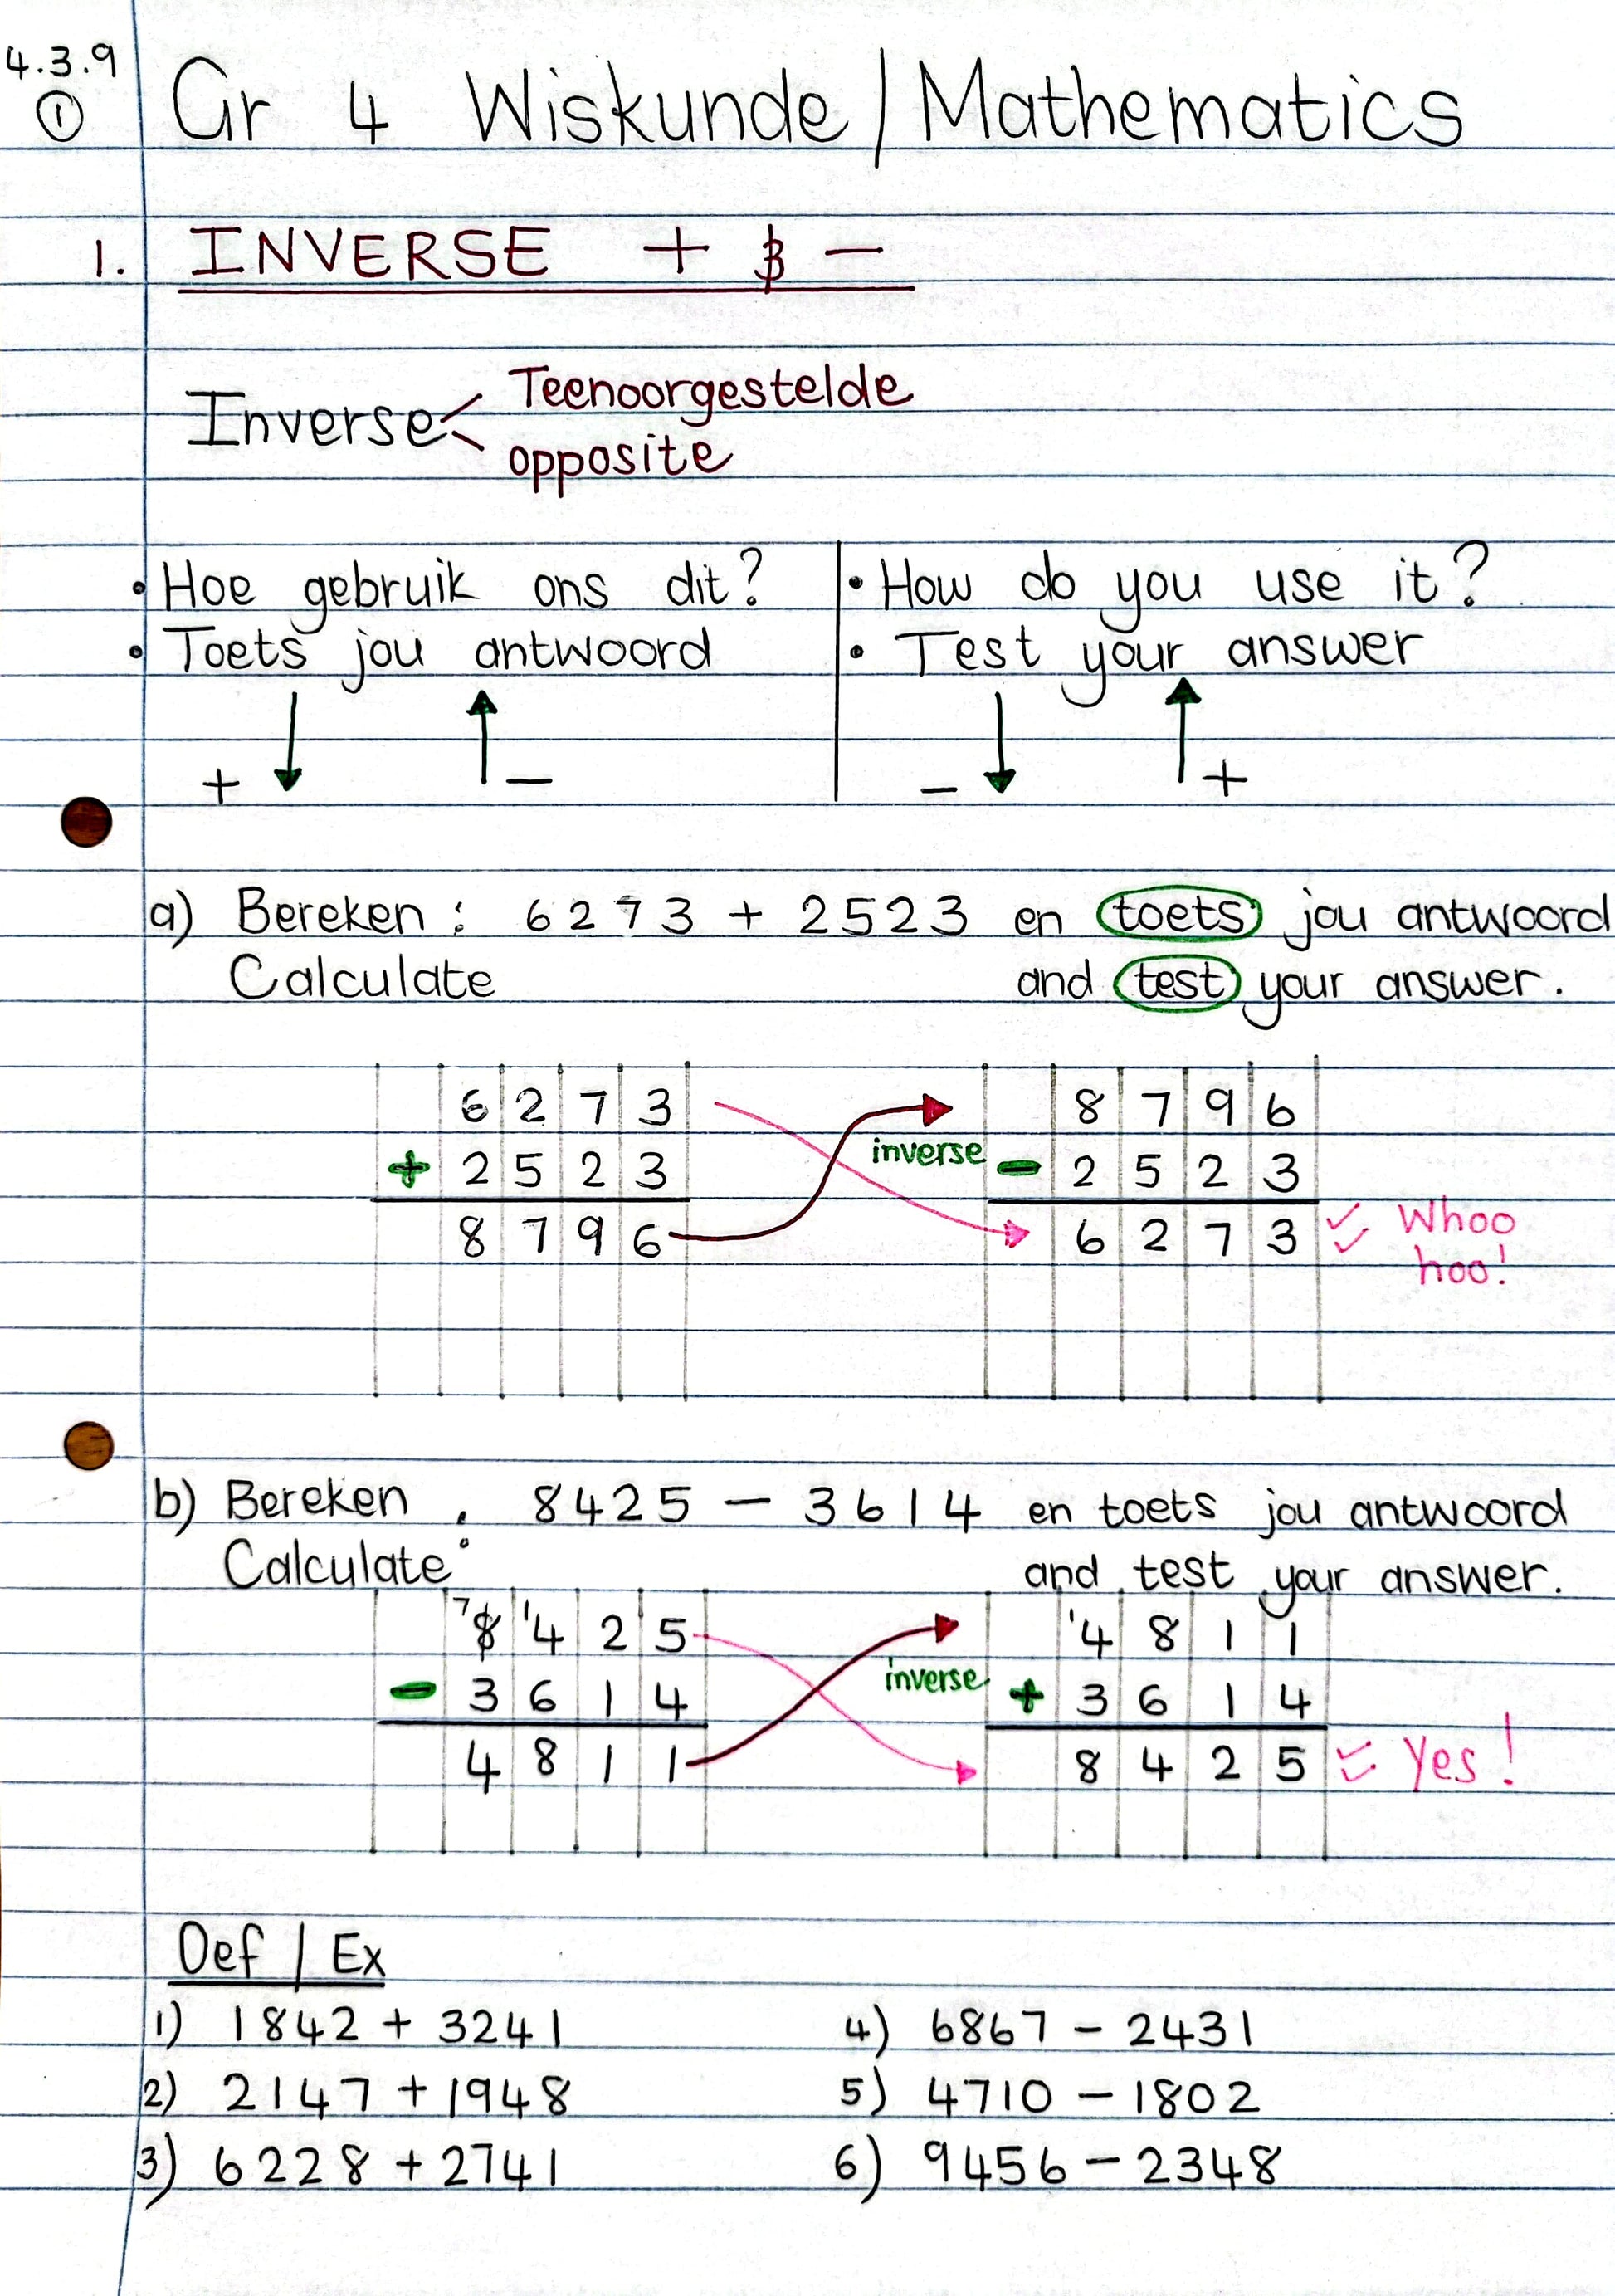 4.3.9
① Gr 4 Wiskunde / Mathematics
1. INVERSE + & -
Inverse < Teenoorgestelde
opposite
• Hoe gebruik ons dit? • How do you use it?
• Toets jou antwoord • Test your answer
+ ↓ ↑ - - ↓ ↑ +
a) Bereken : 6273 + 2523 en toets jou antwoord
Calculate and test your answer.
6 2 7 3 8 7 9 6
+ 2 5 2 3 inverse - 2 5 2 3
8 7 9 6 6 2 7 3 ✓✓ Whoo
hoo!
b) Bereken : 8425 - 3614 en toets jou antwoord
Calculate and test your answer.
7 8 1 4 2 5 1 4 8 1 1
- 3 6 1 4 inverse + 3 6 1 4
4 8 1 1 8 4 2 5 ✓✓ Yes!
Oef / Ex
1) 1842 + 3241 4) 6867 - 2431
2) 2147 + 1948 5) 4710 - 1802
3) 6228 + 2741 6) 9456 - 2348